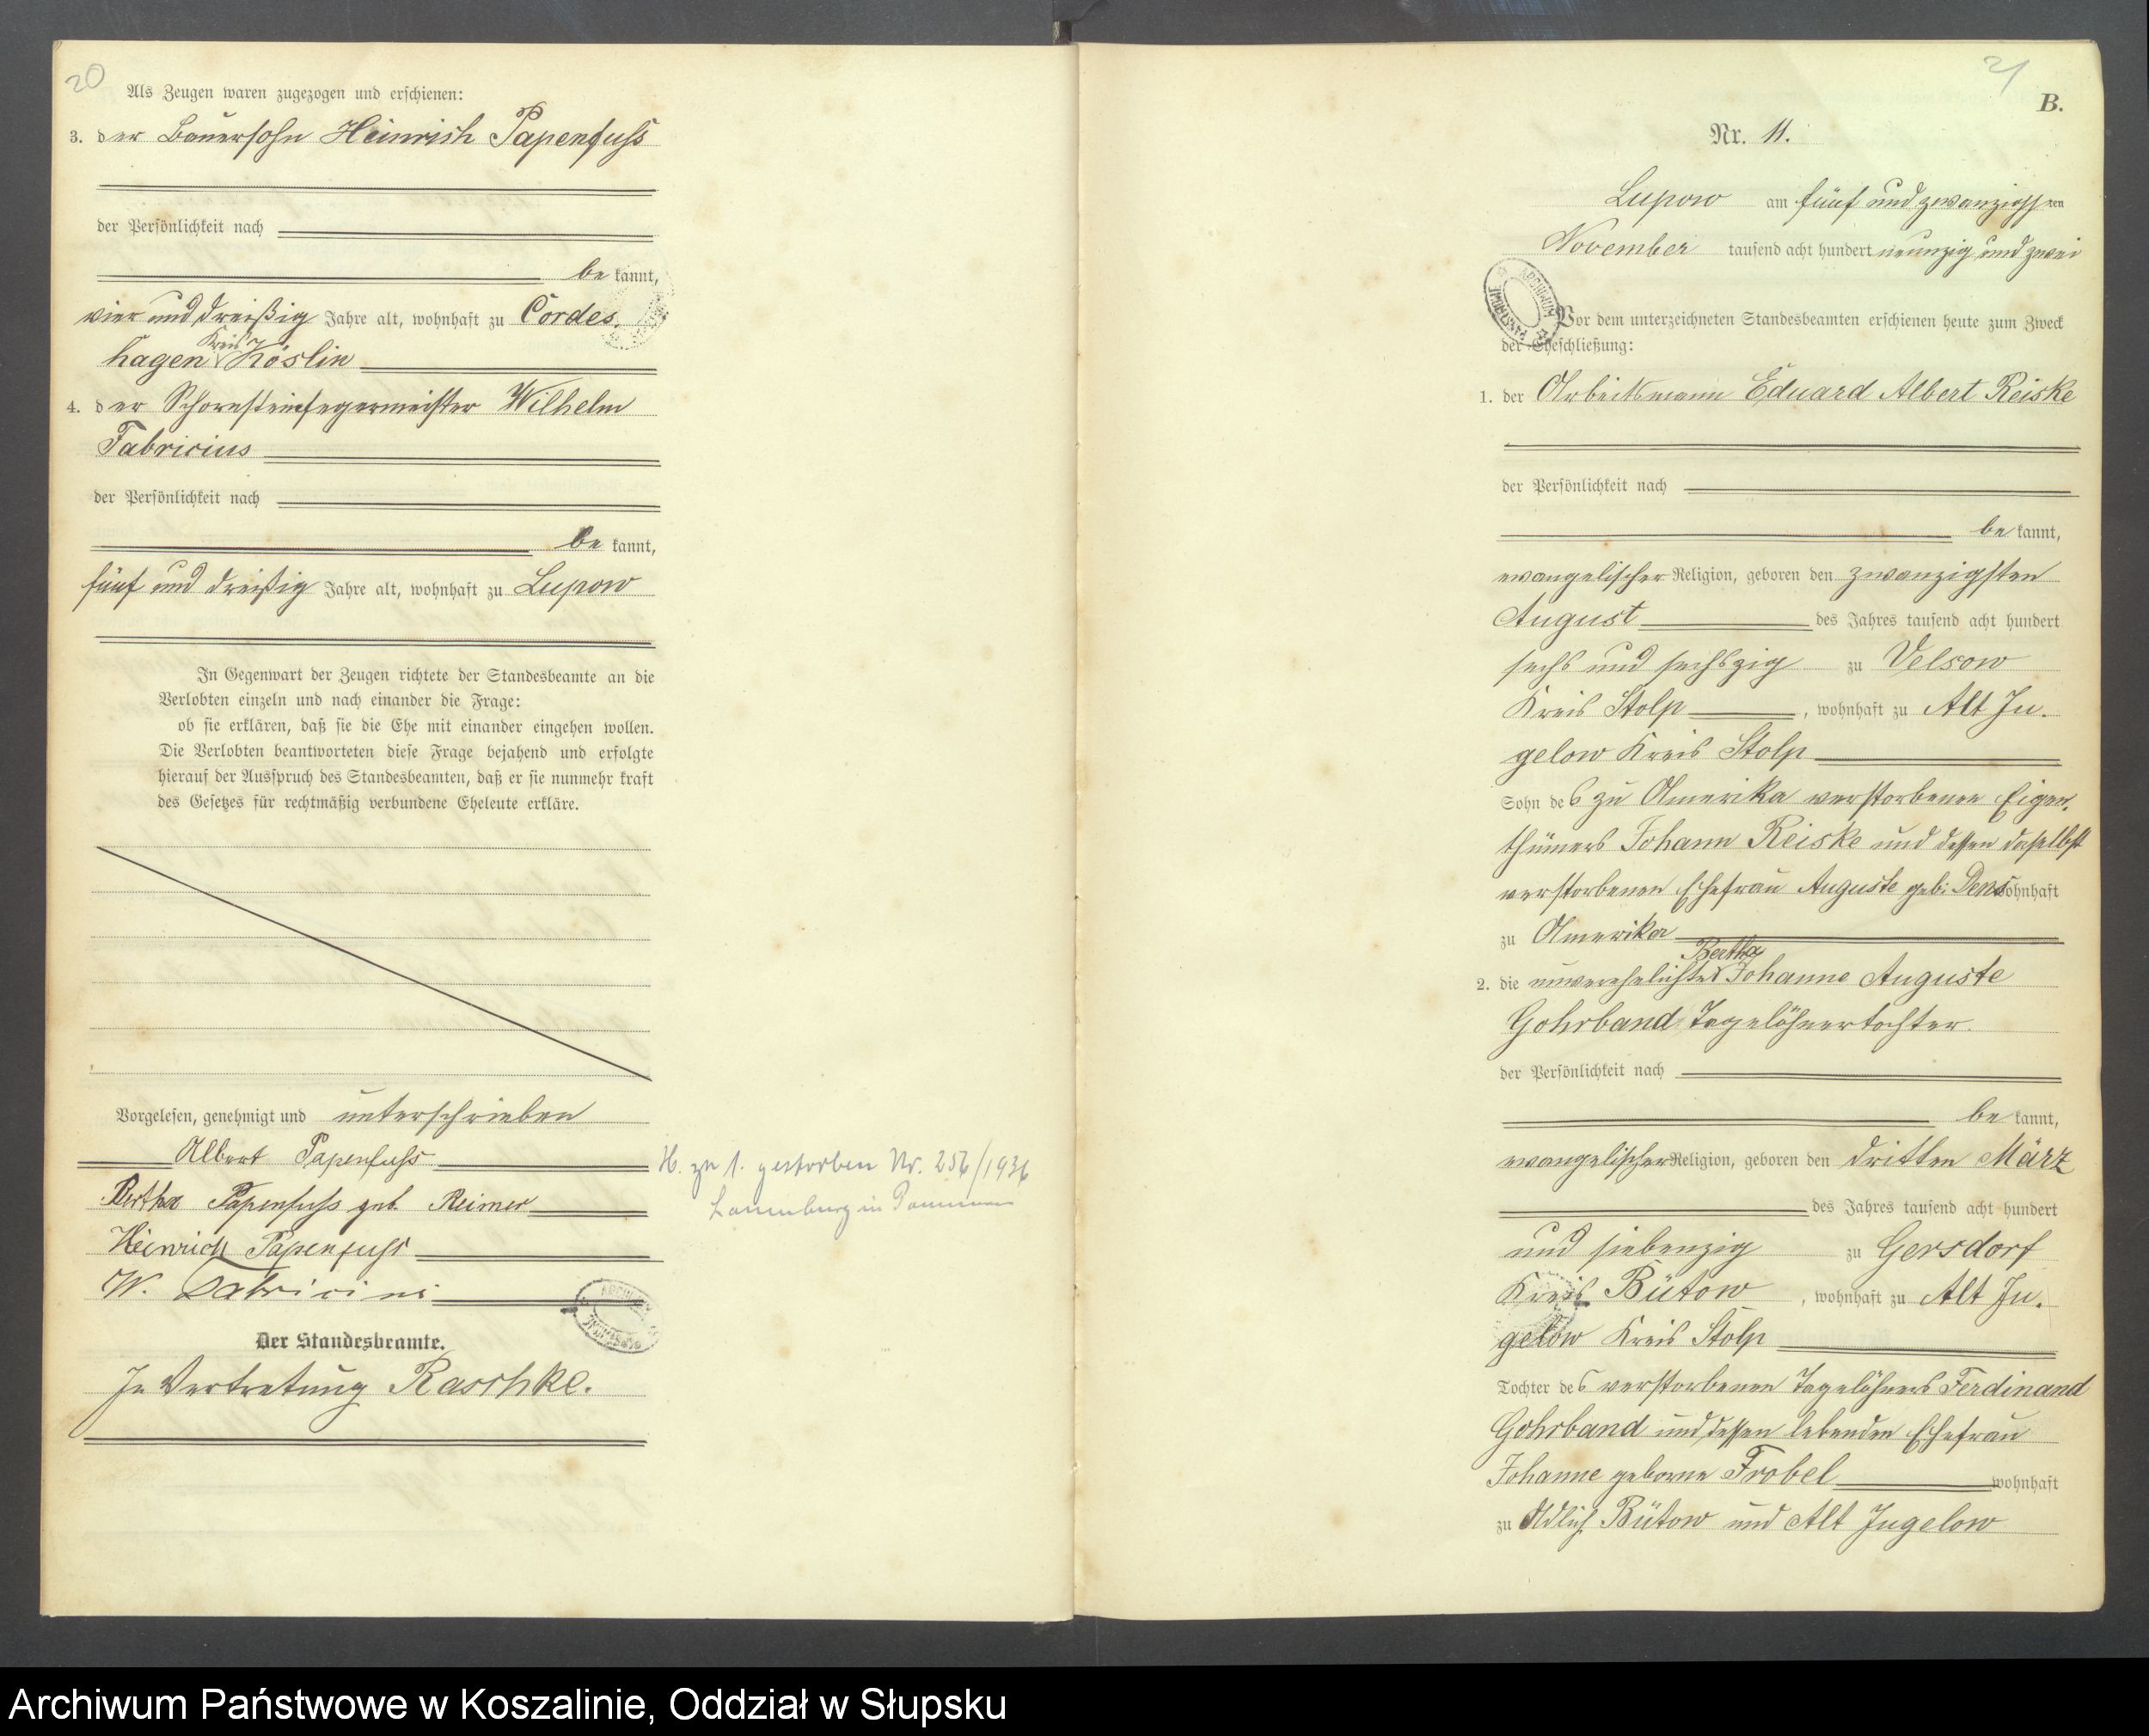 20
Als Zeugen waren zugezogen und erschienen:
3. der Bauersohn Heinrich Papenfuss
der Persönlichkeit nach
be kannt,
vier und dreißig Jahre alt, wohnhaft zu Cordes.
hagen Kreis Köslin
4. der Schornsteinfegermeister Wilhelm
Fabricius
der Persönlichkeit nach
be kannt,
fünf und dreißig Jahre alt, wohnhaft zu Lupow
In Gegenwart der Zeugen richtete der Standesbeamte an die
Verlobten einzeln und nach einander die Frage:
ob sie erklären, daß sie die Ehe mit einander eingehen wollen.
Die Verlobten beantworteten diese Frage bejahend und erfolgte
hierauf der Ausspruch des Standesbeamten, daß er sie nunmehr kraft
des Gesetzes für rechtmäßig verbundene Eheleute erkläre.
Vorgelesen, genehmigt und unterschrieben
Albert Papenfuss
Bertha Papenfuss geb. Reimer
Heinrich Papenfuss
W. Fabricius
H. zu 1. gestorben Nr. 256/1936
Lauenburg in Pommern
Der Standesbeamte.
In Vertretung Raschke.
21
B.
Nr. 11.
Lupow am fünf und zwanzigsten
November tausend acht hundert neunzig und zwei
Vor dem unterzeichneten Standesbeamten erschienen heute zum Zweck
der Eheschließung:
1. der Arbeitsmann Eduard Albert Reiske
der Persönlichkeit nach
be kannt,
evangelischer Religion, geboren den zwanzigsten
August des Jahres tausend acht hundert
sechs und sechszig zu Velsow
Kreis Stolp, wohnhaft zu Alt Ju.
gelow Kreis Stolp
Sohn des zu Amerika verstorbenen Eigen.
thümers Johann Reiske und dessen daselbst
verstorbenen Ehefrau Auguste geb: wohnhaft
zu Amerika
2. die unverehelichte Bertha Johanne Auguste
Gohrband Tagelöhnertochter.
der Persönlichkeit nach
be kannt,
evangelischer Religion, geboren den dritten März
des Jahres tausend acht hundert
und siebenzig zu Gersdorf
Kreis Bütow, wohnhaft zu Alt Ju.
gelow Kreis Stolp
Tochter des verstorbenen Tagelöhners Ferdinand
Gohrband und dessen lebenden Ehefrau
Johanne geborne Frobel wohnhaft
zu Adlich Bütow und Alt Jugelow
Archiwum Państwowe w Koszalinie, Oddział w Słupsku